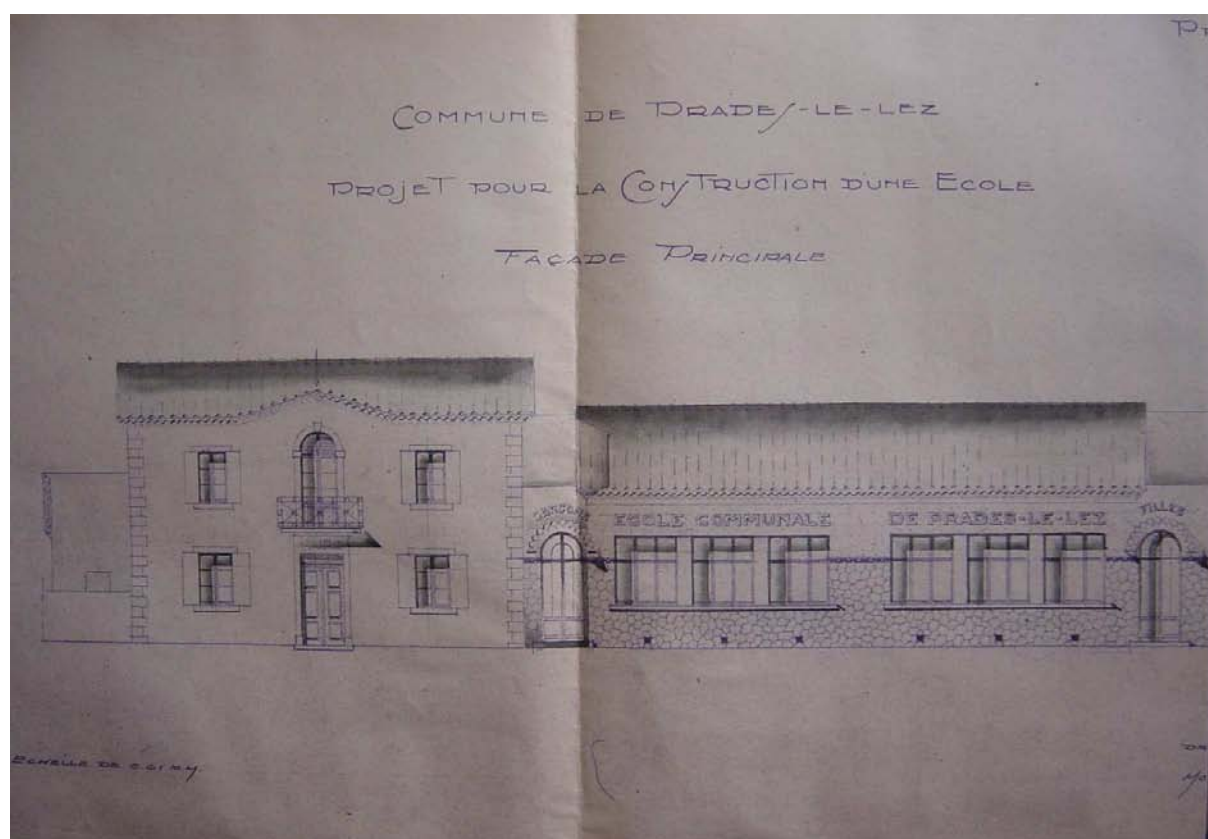 COMMUNE DE PRADES-LE-LEZ
PROJET POUR LA CONSTRUCTION D'UNE ECOLE
FAÇADE PRINCIPALE
GARÇONS
ECOLE COMMUNALE DE PRADES-LE-LEZ
FILLES
ECHELLE DE